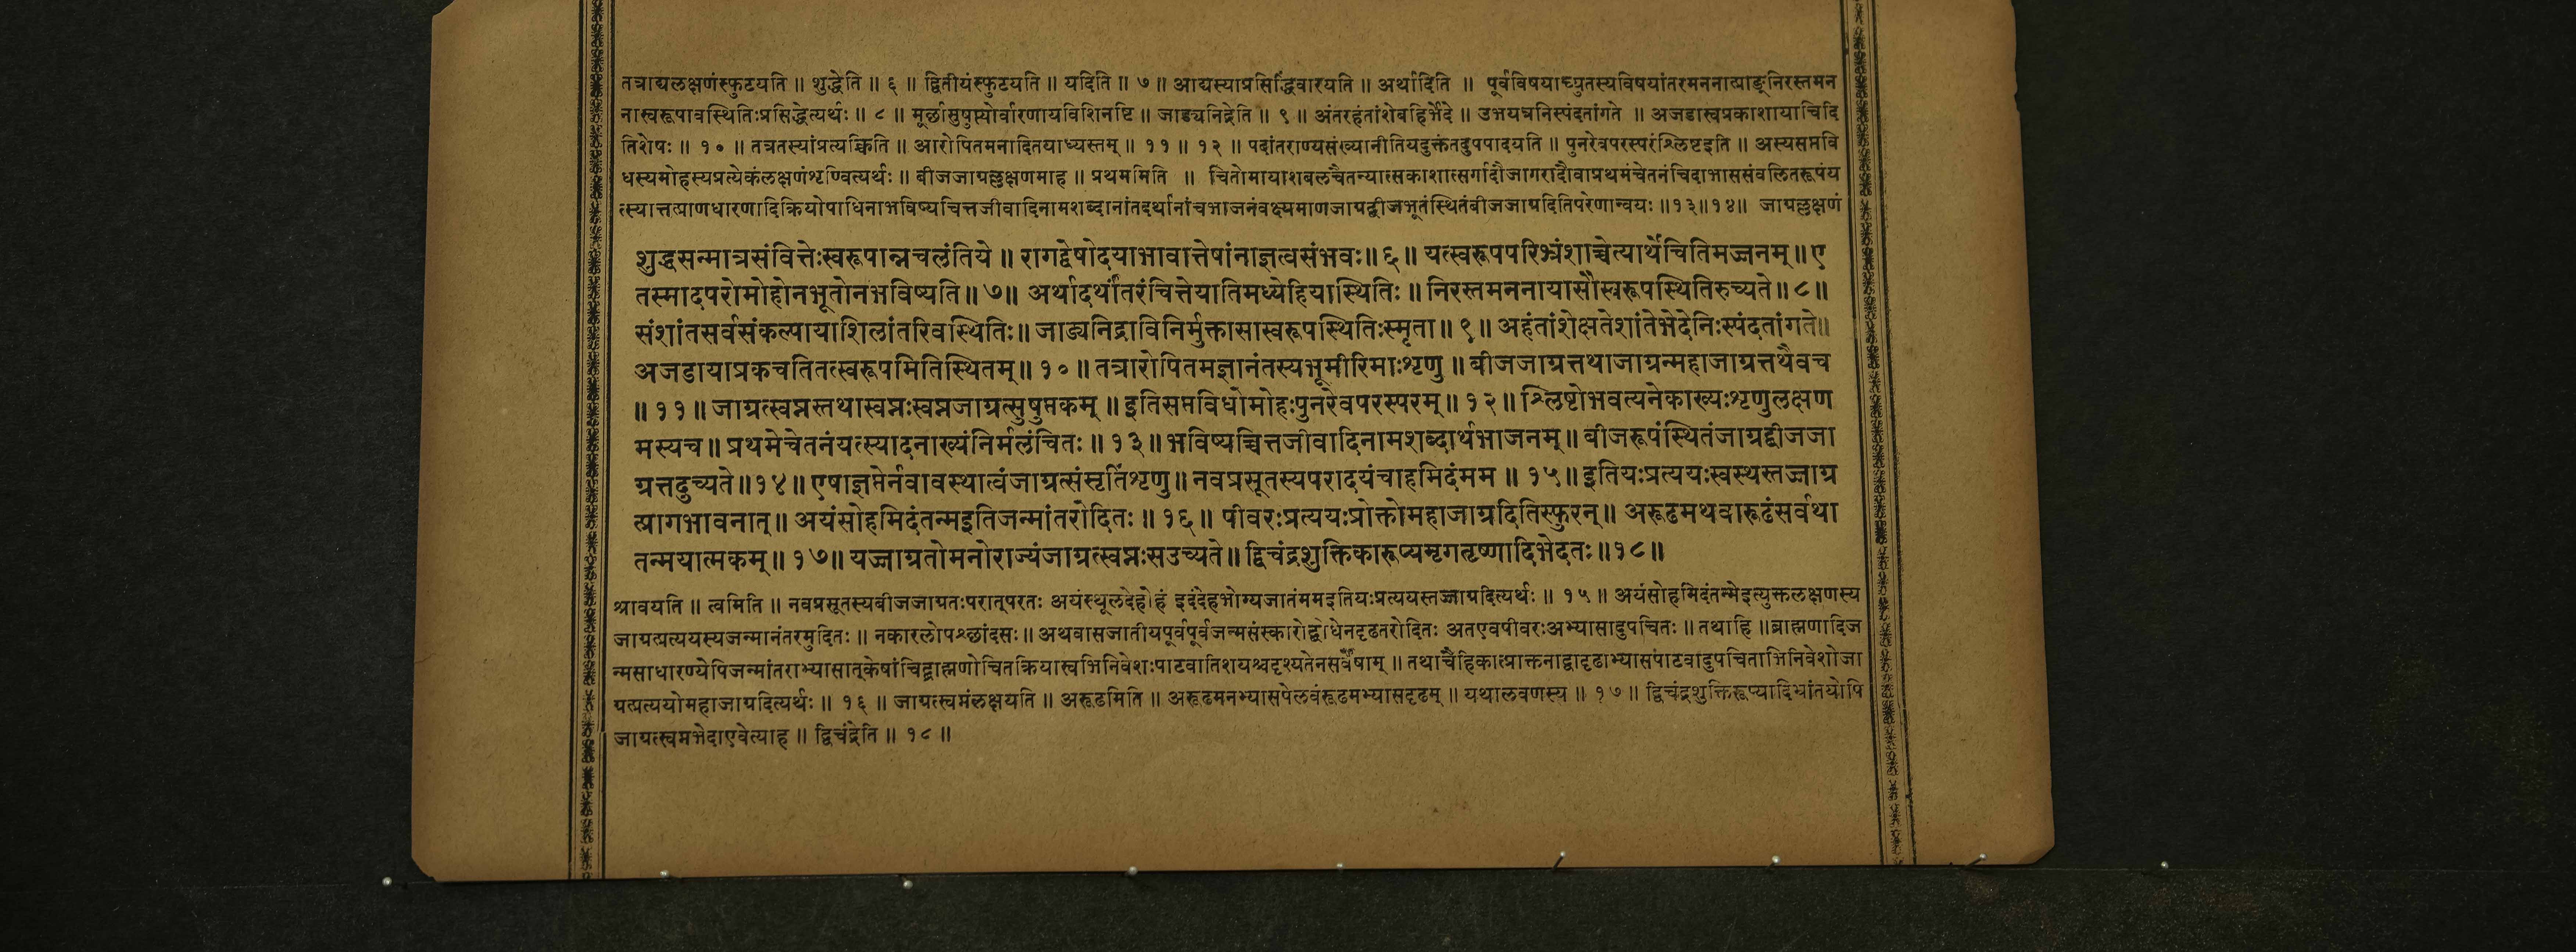 तत्राद्यलक्षणंस्फुटयति ॥ शुद्धेति ॥ ६ ॥ द्वितीयंस्फुटयति ॥ यदिति ॥ ७ ॥ आद्यस्याप्रसिद्धिंवारयति ॥ अर्थादिति ॥ पूर्वविषयाच्च्युतस्यविषयांतरमननात्प्राङ्निरस्तमन
नास्वरूपावस्थितिःप्रसिद्धेत्यर्थः ॥ ८ ॥ मूर्छासुषुप्त्योर्वारणायविशिनष्टि ॥ जाड्यनिद्रेति ॥ ९ ॥ अंतरहंतांशेबहिर्भेदे ॥ उभयत्रनिस्पंदतांगते ॥ अजडास्वप्रकाशायाचिदि
तिशेषः ॥ १० ॥ तत्रतस्यांप्रत्यक्चिति ॥ आरोपितमनादितयाध्यस्तम् ॥ ११ ॥ १२ ॥ पदांतराण्यसंख्यानीतियदुक्तंतदुपपादयति ॥ पुनरेवपरस्परंश्लिष्टइति ॥ अस्यसप्तवि
धस्यमोहस्यप्रत्येकंलक्षणंशृण्वित्यर्थः ॥ बीजजाग्रल्लक्षणमाह ॥ प्रथममिति ॥ चितोमायाशबलचैतन्यात्सकाशात्सर्गादौजागरादौवाप्रथमंचेतनंचिदाभाससंवलितरूपंय
त्स्यात्तत्प्राणधारणादिक्रियोपाधिनाभविष्यचित्तजीवादिनामशब्दानांतदर्थानांचभाजनंवक्ष्यमाणजाग्रद्बीजभूतंस्थितंबीजजाग्रदितिपरेणान्वयः ॥१३॥१४॥ जाग्रल्लक्षणं
शुद्धसन्मात्रसंवित्तेःस्वरूपान्नचलंतिये ॥ रागद्वेषोदयाभावात्तेषांनाज्ञत्वसंभवः॥६॥ यत्स्वरूपपरिभ्रंशाच्चेत्यार्थेचितिमज्जनम् ॥ ए
तस्मादपरोमोहोनभूतोनभविष्यति ॥ ७॥ अर्थादर्थांतरंचित्तेयातिमध्येहियास्थितिः ॥ निरस्तमननायासौस्वरूपस्थितिरुच्यते ॥ ८॥
संशांतसर्वसंकल्पायाशिलांतरिवस्थितिः॥ जाड्यनिद्राविनिर्मुक्तासास्वरूपस्थितिःस्मृता॥ ९॥ अहंतांशेक्षतेशांतेभेदेनिःस्पंदतांगते॥
अजडायाप्रकचतितत्स्वरूपमितिस्थितम्॥ १० ॥ तत्रारोपितमज्ञानंतस्यभूमीरिमाःशृणु ॥ बीजजाग्रत्तथाजाग्रन्महाजाग्रत्तथैवच
॥ ११॥ जाग्रत्स्वप्नस्तथास्वप्नःस्वप्नजाग्रत्सुषुप्तकम् ॥ इतिसप्तविधोमोहःपुनरेवपरस्परम्॥ १२॥ श्लिष्टोभवत्यनेकाख्यःशृणुलक्षण
मस्यच॥ प्रथमेचेतनंयत्स्यादनाख्यंनिर्मलंचितः ॥ १३॥ भविष्यच्चित्तजीवादिनामशब्दार्थभाजनम्॥ बीजरूपंस्थितंजाग्रद्बीजजा
ग्रत्तदुच्यते॥१४॥ एषाज्ञप्तेर्नवावस्थात्वंजाग्रत्संसृतिंशृणु॥ नवप्रसूतस्यपरादयंचाहमिदंमम ॥ १५॥ इतियःप्रत्ययःस्वस्थस्तज्जाग्र
त्प्रागभावनात्॥ अयंसोहमिदंतन्मइतिजन्मांतरोदितः ॥ १६॥ पीवरःप्रत्ययःप्रोक्तोमहाजाग्रदितिस्फुरन्॥ अरूढमथवारूढंसर्वथा
तन्मयात्मकम्॥ १७॥ यज्जाग्रतोमनोराज्यंजाग्रत्स्वप्नःसउच्यते॥ द्विचंद्रशुक्तिकारूप्यमृगतृष्णादिभेदतः॥१८॥
श्रावयति ॥ त्वमिति ॥ नवप्रसूतस्यबीजजाग्रतःपरात्परतः अयंस्थूलदेहोहं इदंदेहभोग्यजातंममइतियःप्रत्ययस्तज्जाग्रदित्यर्थः ॥ १५ ॥ अयंसोहमिदंतन्मेइत्युक्तलक्षणस्य
जाग्रत्प्रत्ययस्यजन्मानंतरमुदितः ॥ नकारलोपश्छांदसः ॥ अथवासजातीयपूर्वपूर्वजन्मसंस्कारोद्बोधेनदृढतरोदितः अतएवपीवरःअभ्यासादुपचितः ॥ तथाहि ॥ब्राह्मणादिज
न्मसाधारण्येपिजन्मांतराभ्यासात्केषांचिद्ब्राह्मणोचितक्रियास्वभिनिवेशःपाटवातिशयश्चदृश्यतेनसर्वेषाम् ॥ तथाचैहिकात्प्राक्तनाद्वादृढाभ्यासपाटवादुपचिताभिनिवेशोजा
ग्रत्प्रत्ययोमहाजाग्रदित्यर्थः ॥ १६ ॥ जाग्रत्स्वप्नंलक्षयति ॥ अरूढमिति ॥ अरूढमनभ्यासपेलवंरूढमभ्यासदृढम् ॥ यथालवणस्य ॥ १७ ॥ द्विचंद्रशुक्तिरूप्यादिभ्रांतयोपि
जाग्रत्स्वप्नभेदाएवेत्याह ॥ द्विचंद्रेति ॥ १८ ॥